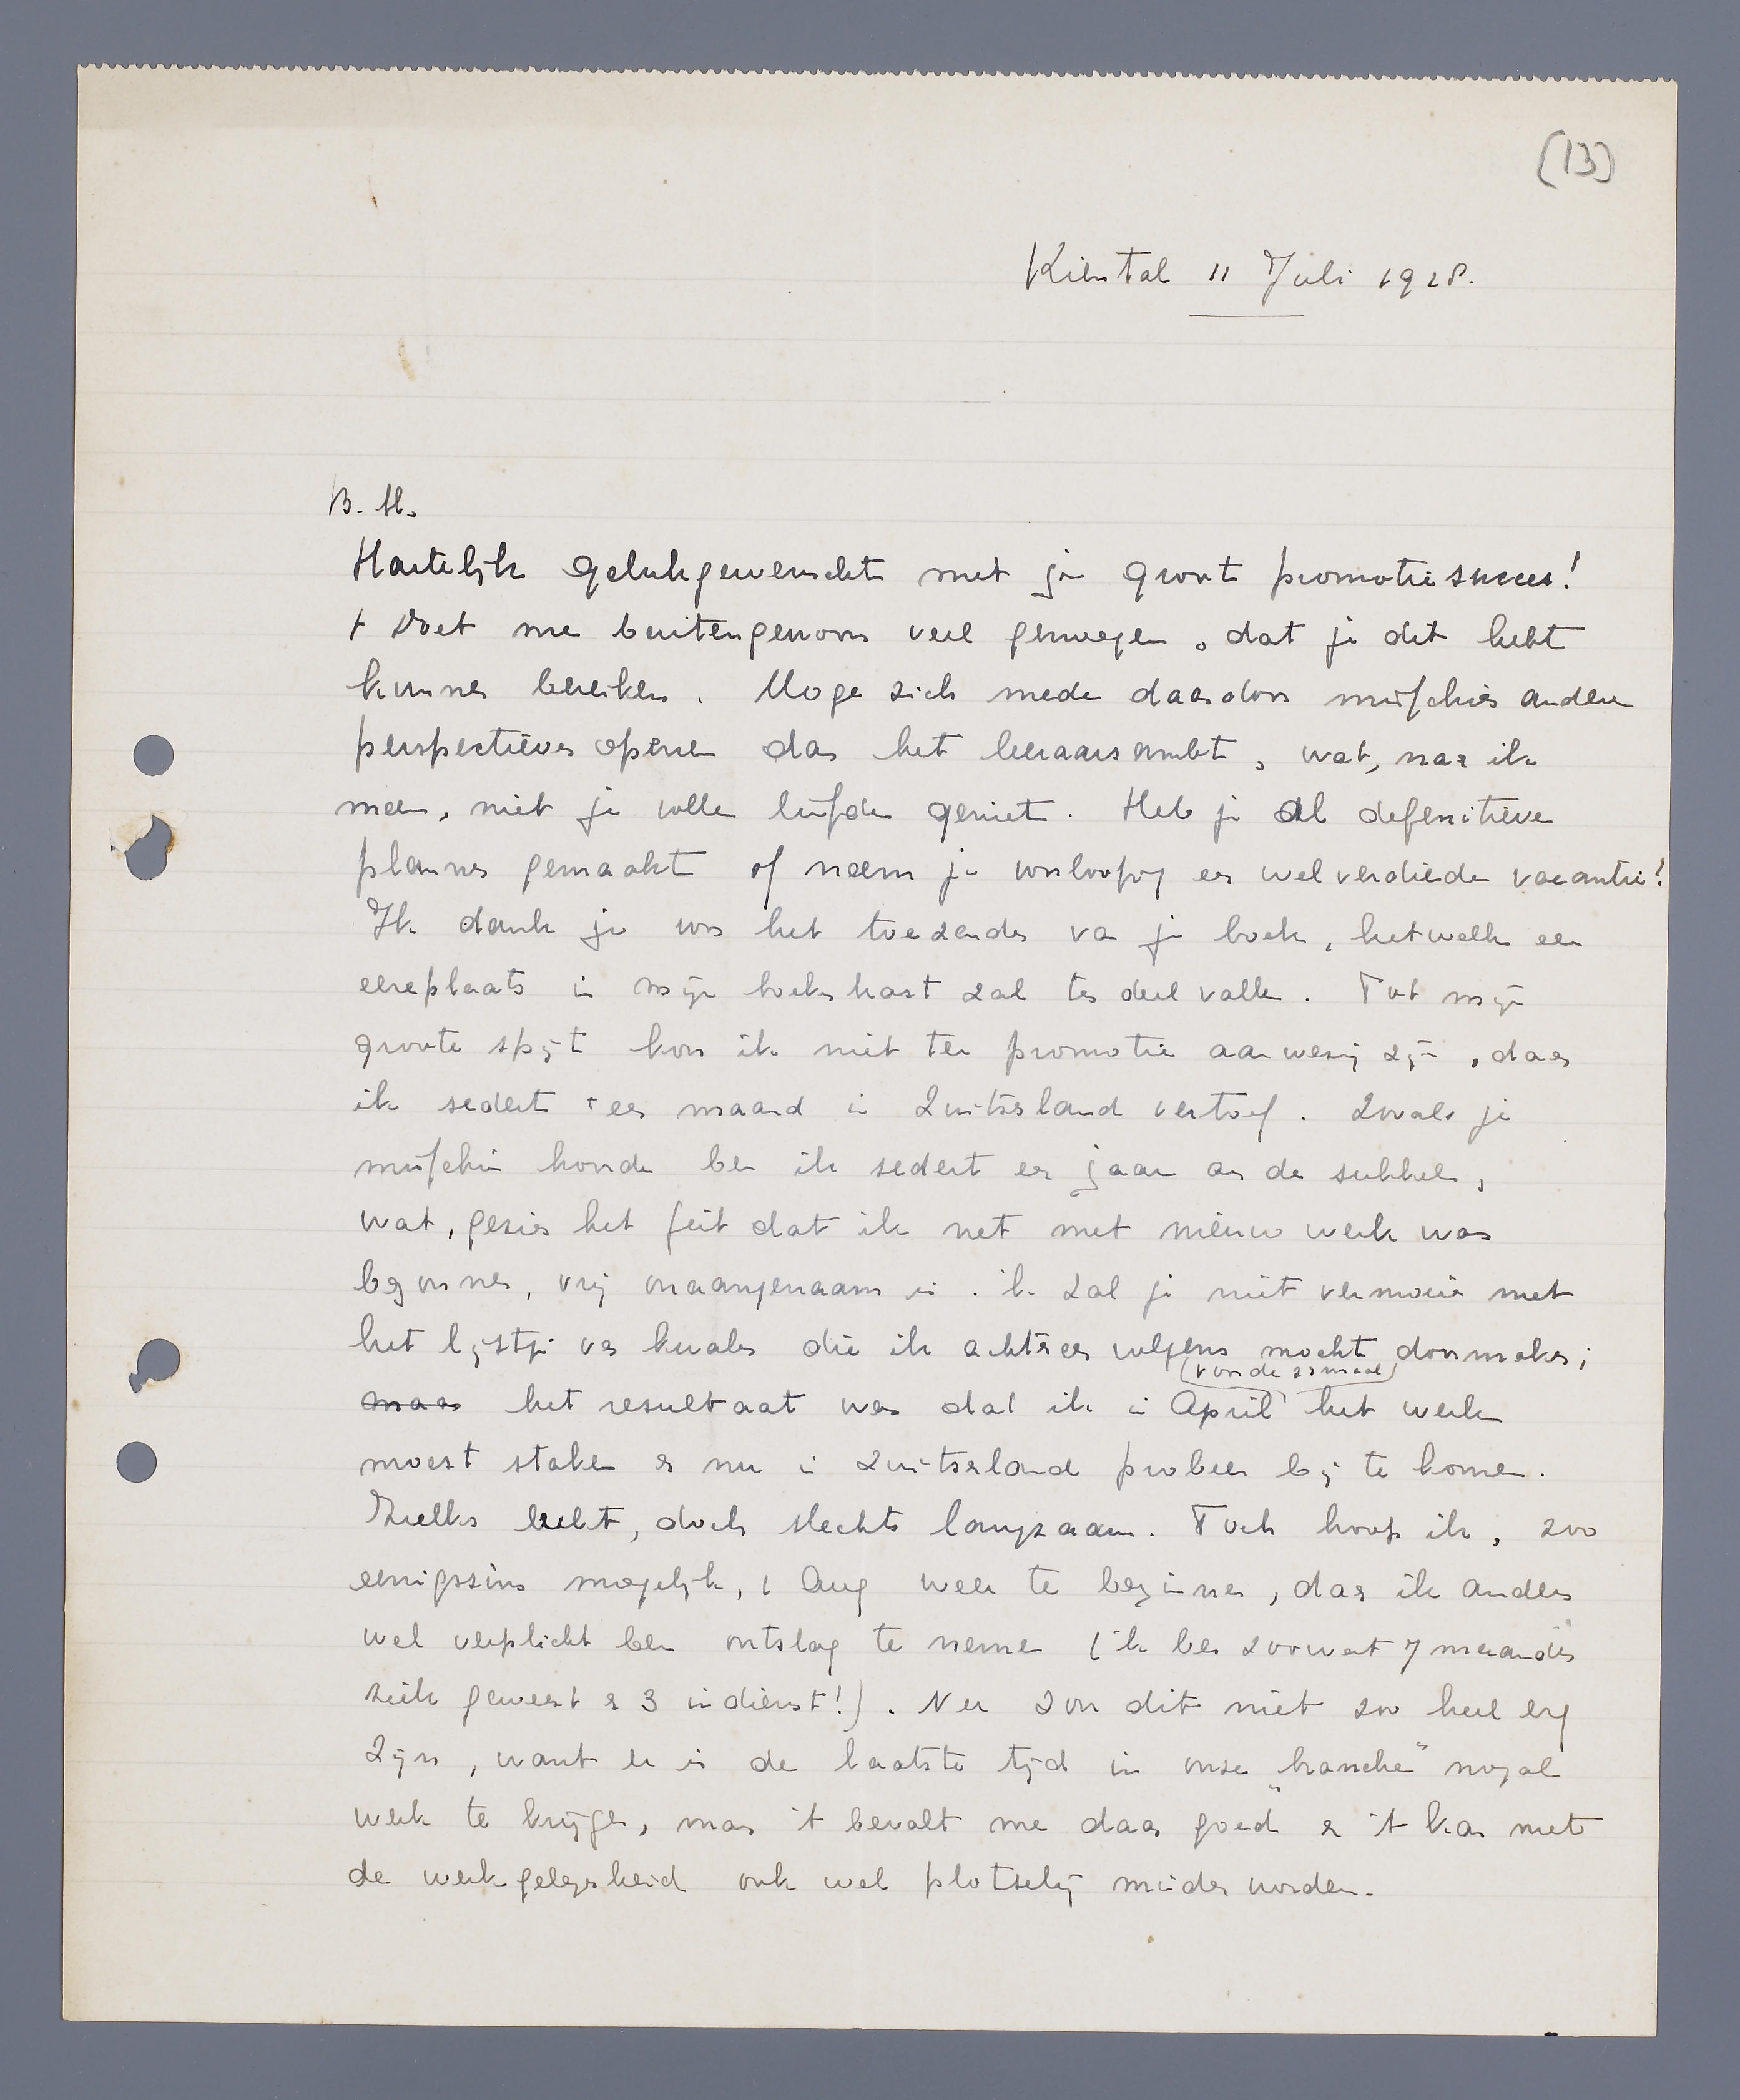 (13)
Kiental 11 Juli 1928.
B. H.
Hartelijk gelukgewenscht met je groot promotiesucces!
't Doet me buitengewoon veel genoegen, dat je dit hebt
kunnen bereiken. Moge zich mede daardoor misschien andere
perspectieven openen dan het leeraarsambt, wat, naar ik
meen, niet je volle liefde geniet. Heb je al defenitieve
plannen gemaakt of neem je voorloopig een welverdiende vacantie?
Ik dank je voor het toezenden van je boek, hetwelk een
eereplaats in mijn boekenkast zal ten deel vallen. Tot mijn
groote spijt kon ik niet ter promotie aanwezig zijn, daar
ik sedert een maand in Zwitserland vertoef. Zooals je
misschien hoorde ben ik sedert een jaar aan de sukkel,
wat, gezien het feit dat ik net met nieuw werk was
begonnen, vrij onaangenaam is. Ik zal je niet vermoeien met
het lijstje van kwalen die ik achtereenvolgens mocht doormaken;
(voor de 2e maal)
maar het resultaat was dat ik in April het werk
moest staken en nu in Zwitserland probeer bij te komen.
Zulks lukt, doch slechts langzaam. Toch hoop ik, zoo
eenigszins mogelijk, 1 Aug weer te beginnen, daar ik anders
wel verplicht ben ontslag te nemen (ik ben zoowat 7 maanden
ziek geweest en 3 in dienst!). Nu zou dit niet zoo heel erg
zijn, want er is de laatste tijd in onze „branche" nogal
werk te krijgen, maar 't bevalt me daar goed en 't kan met
de werkgelegenheid ook wel plotseling minder worden.